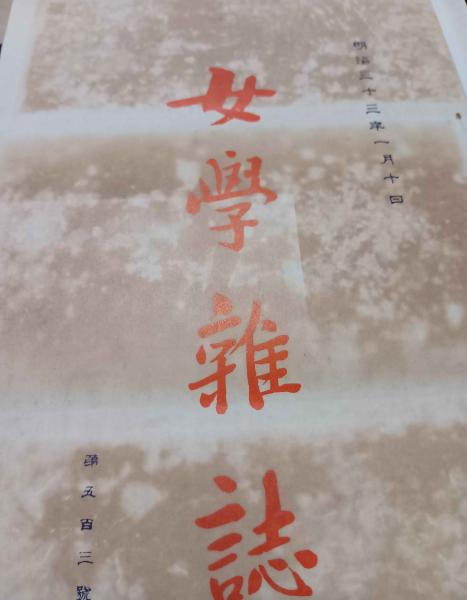 明治三十三年一月十日
女學雜誌
第五百三號